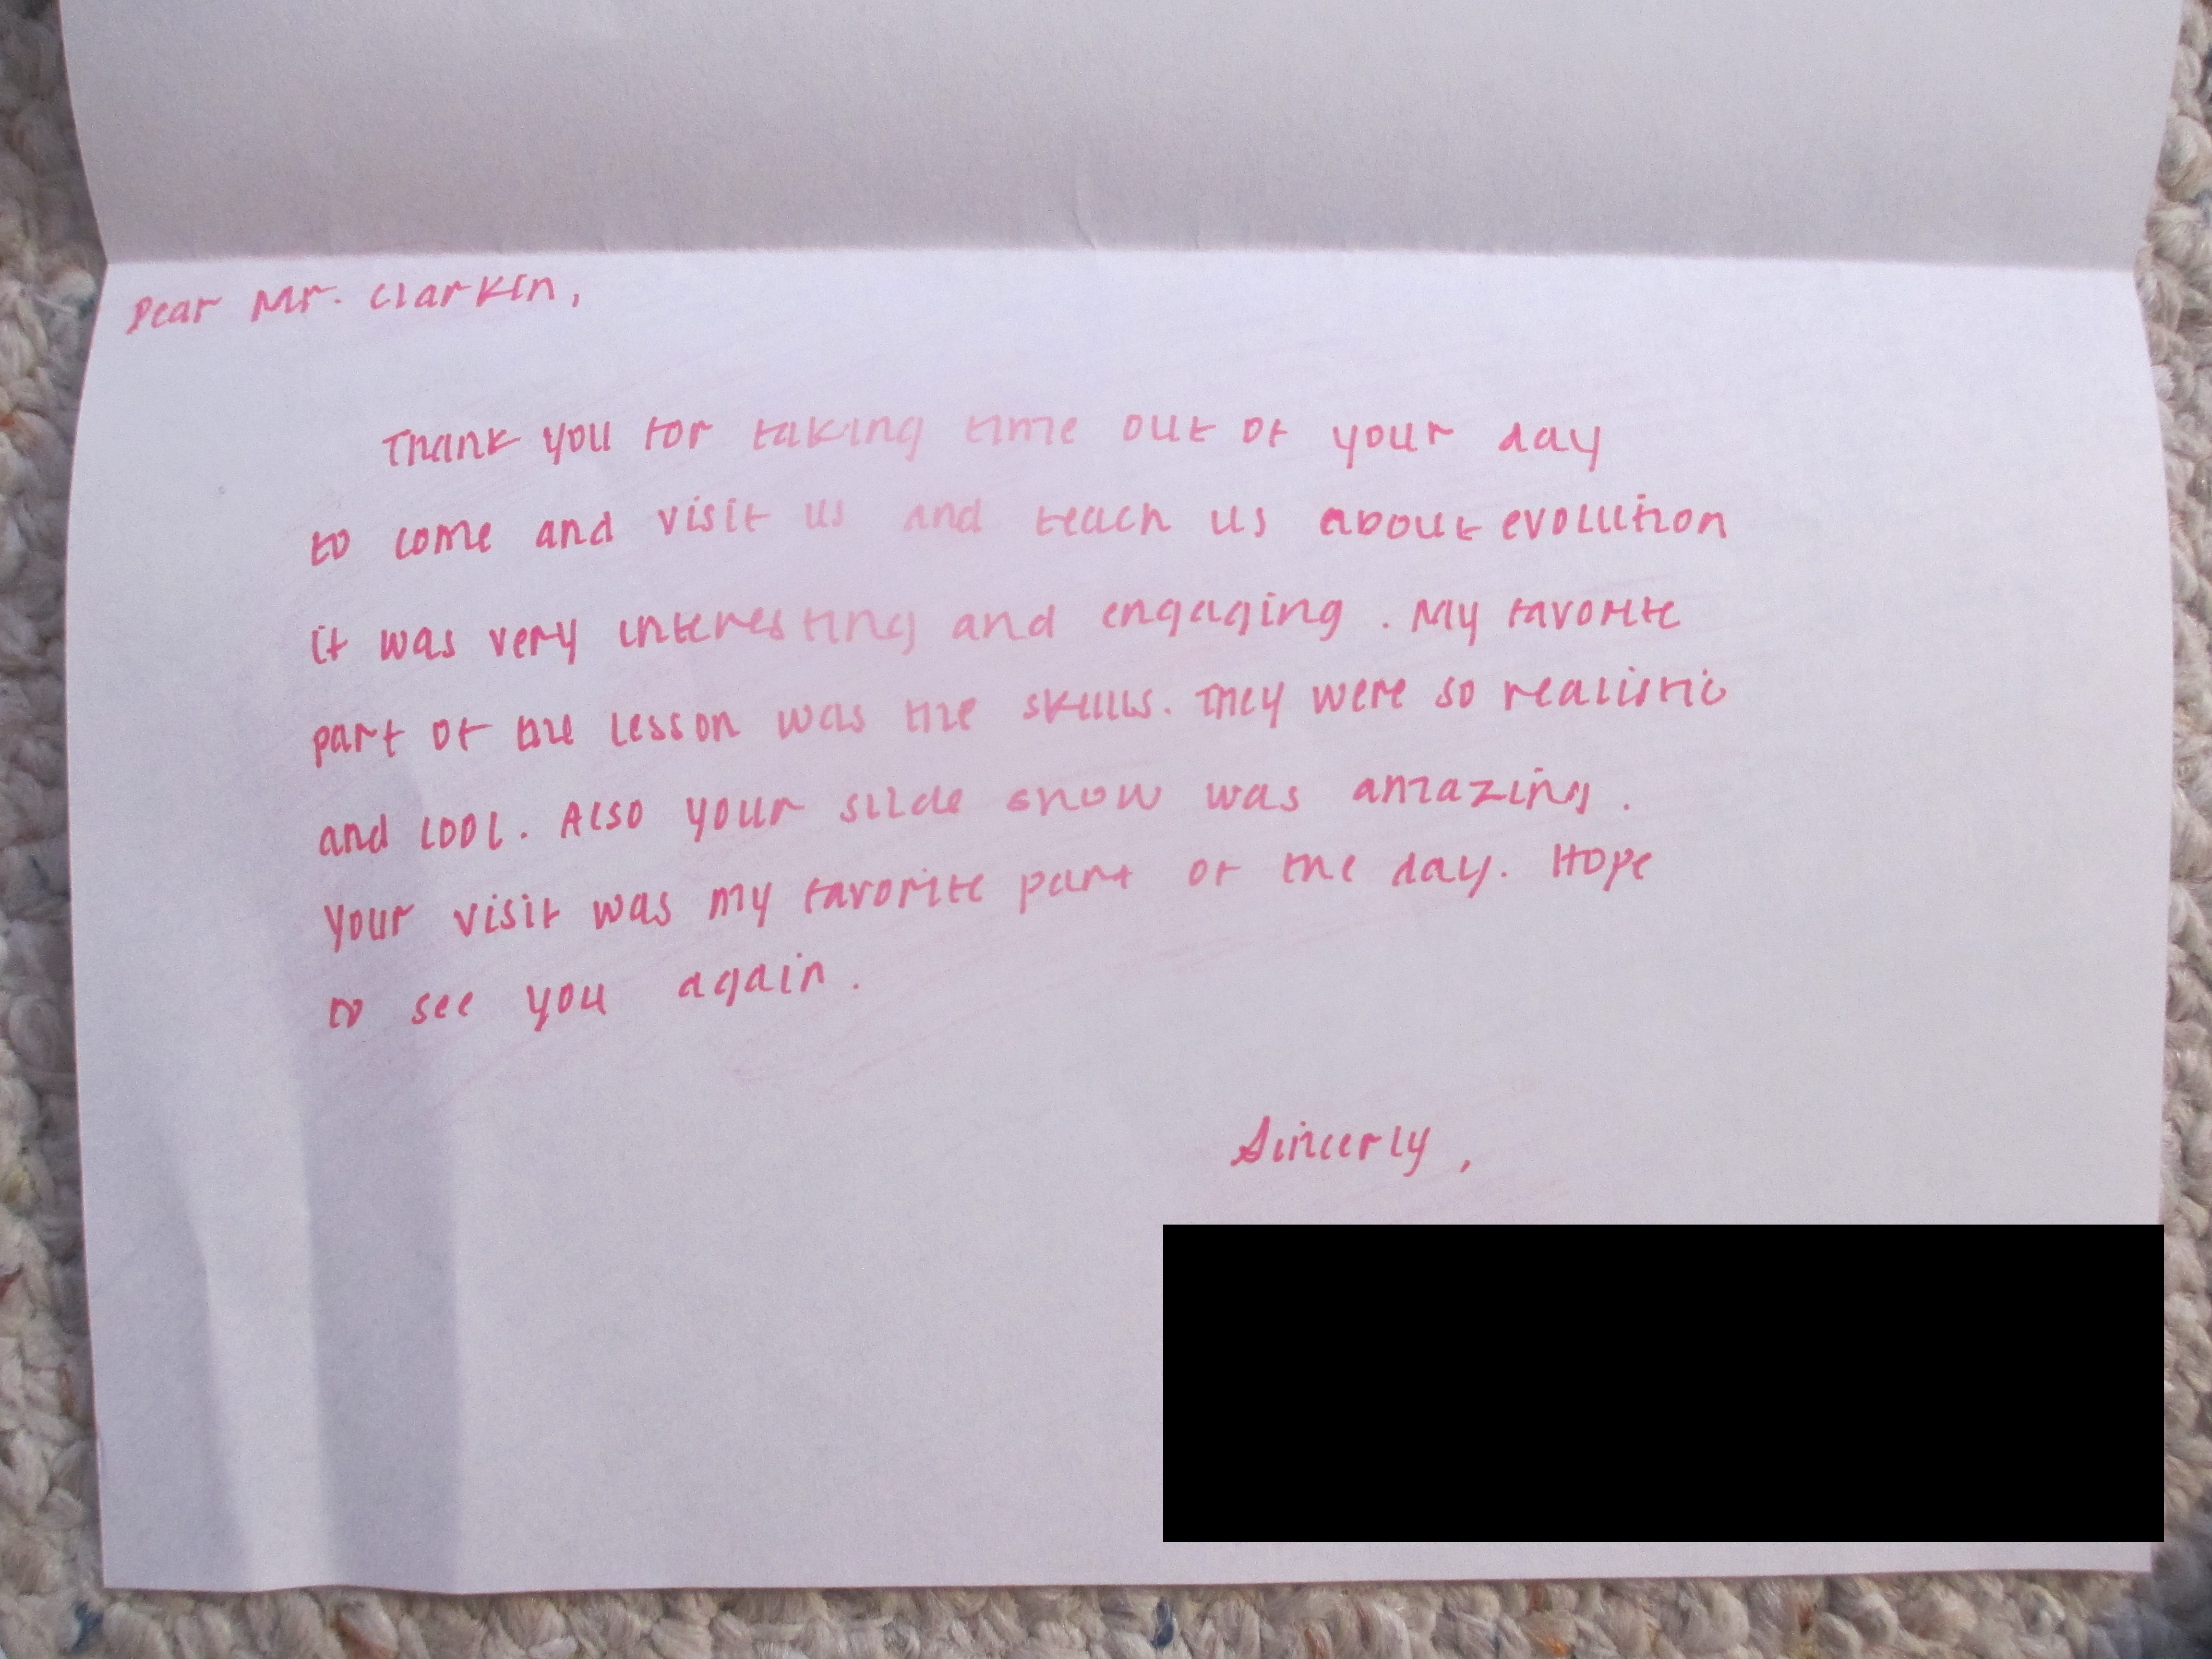 Dear Mr. Clarkin,
Thank you for taking time out of your day
to come and visit us and teach us about evolution
it was very interesting and engaging. My favorite
part of the lesson was the skulls. They were so realistic
and cool. Also your slide show was amazing.
Your visit was my favorite part of the day. Hope
to see you again.
Sincerly,